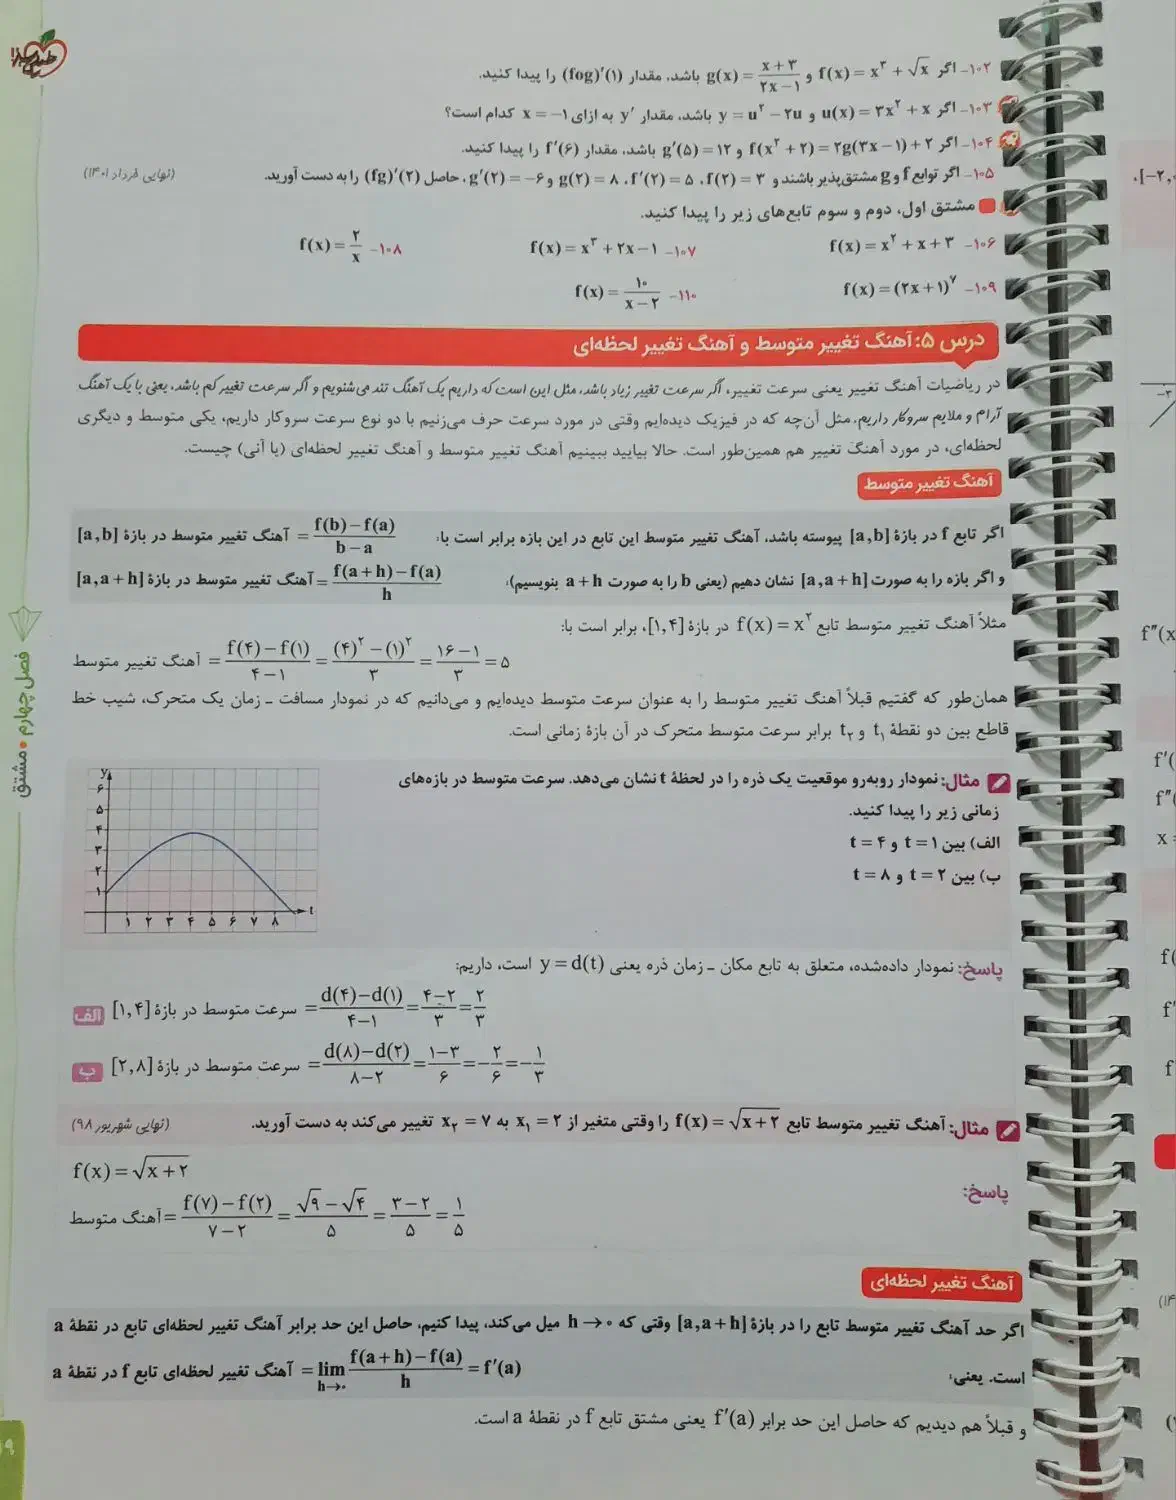 ۱۰۲- اگر f(x) = x³ + √x و g(x) = (x+۳)/(۲x−۱) باشد، مقدار (fog)′(۱) را پیدا کنید.
۱۰۳- اگر u(x) = ۳x² + x و y = u² − ۲u باشد، مقدار y′ به ازای x = −۱ کدام است؟
۱۰۴- اگر f(x² + ۲) = ۲g(۳x − ۱) + ۲ و g′(۵) = ۱۲ باشد، مقدار f′(۶) را پیدا کنید.
۱۰۵- اگر توابع f و g مشتق‌پذیر باشند و f(۲) = ۳، f′(۲) = ۵، g(۲) = ۸ و g′(۲) = −۶، حاصل (fg)′(۲) را به دست آورید. (نهایی خرداد ۱۴۰۱)
مشتق اول، دوم و سوم تابع‌های زیر را پیدا کنید.
۱۰۶- f(x) = x² + x + ۳ ۱۰۷- f(x) = x³ + ۲x − ۱ ۱۰۸- f(x) = ۲/x
۱۰۹- f(x) = (۲x + ۱)⁷ ۱۱۰- f(x) = ۱۰/(x−۲)
درس ۵: آهنگ تغییر متوسط و آهنگ تغییر لحظه‌ای
در ریاضیات آهنگ تغییر یعنی سرعت تغییر، اگر سرعت تغییر زیاد باشد، مثل این است که داریم یک آهنگ تند می‌شنویم و اگر سرعت تغییر کم باشد، یعنی با یک آهنگ
آرام و ملایم سروکار داریم. مثل آن‌چه که در فیزیک دیده‌ایم وقتی در مورد سرعت حرف می‌زنیم با دو نوع سرعت سروکار داریم، یکی متوسط و دیگری
لحظه‌ای، در مورد آهنگ تغییر هم همین‌طور است. حالا بیایید ببینیم آهنگ تغییر متوسط و آهنگ تغییر لحظه‌ای (یا آنی) چیست.
آهنگ تغییر متوسط
اگر تابع f در بازهٔ [a,b] پیوسته باشد، آهنگ تغییر متوسط این تابع در این بازه برابر است با: آهنگ تغییر متوسط در بازهٔ [a,b] = (f(b)−f(a))/(b−a)
و اگر بازه را به صورت [a,a+h] نشان دهیم (یعنی b را به صورت a+h بنویسیم): آهنگ تغییر متوسط در بازهٔ [a,a+h] = (f(a+h)−f(a))/h
مثلاً آهنگ تغییر متوسط تابع f(x) = x² در بازهٔ [۱,۴]، برابر است با:
آهنگ تغییر متوسط = (f(۴)−f(۱))/(۴−۱) = ((۴)²−(۱)²)/۳ = (۱۶−۱)/۳ = ۵
همان‌طور که گفتیم قبلاً آهنگ تغییر متوسط را به عنوان سرعت متوسط دیده‌ایم و می‌دانیم که در نمودار مسافت - زمان یک متحرک، شیب خط
قاطع بین دو نقطهٔ t₁ و t₂ برابر سرعت متوسط متحرک در آن بازهٔ زمانی است.
مثال: نمودار روبه‌رو موقعیت یک ذره را در لحظهٔ t نشان می‌دهد. سرعت متوسط در بازه‌های
زمانی زیر را پیدا کنید.
الف) بین t = ۱ و t = ۴
ب) بین t = ۲ و t = ۸
y
۶
۵
۴
۳
۲
۱
۱ ۲ ۳ ۴ ۵ ۶ ۷ ۸ t
پاسخ: نمودار داده‌شده، متعلق به تابع مکان - زمان ذره یعنی y = d(t) است، داریم:
الف سرعت متوسط در بازهٔ [۱,۴] = (d(۴)−d(۱))/(۴−۱) = (۴−۲)/۳ = ۲/۳
ب سرعت متوسط در بازهٔ [۲,۸] = (d(۸)−d(۲))/(۸−۲) = (۱−۳)/۶ = −۲/۶ = −۱/۳
مثال: آهنگ تغییر متوسط تابع f(x) = √(x+۲) را وقتی متغیر از x₁ = ۲ به x₂ = ۷ تغییر می‌کند به دست آورید. (نهایی شهریور ۹۸)
f(x) = √(x+۲)
پاسخ:
آهنگ متوسط = (f(۷)−f(۲))/(۷−۲) = (√۹−√۴)/۵ = (۳−۲)/۵ = ۱/۵
آهنگ تغییر لحظه‌ای
اگر حد آهنگ تغییر متوسط تابع را در بازهٔ [a,a+h] وقتی که h→۰ میل می‌کند، پیدا کنیم، حاصل این حد برابر آهنگ تغییر لحظه‌ای تابع در نقطهٔ a
است. یعنی: آهنگ تغییر لحظه‌ای تابع f در نقطهٔ a = lim h→۰ (f(a+h)−f(a))/h = f′(a)
و قبلاً هم دیدیم که حاصل این حد برابر f′(a) یعنی مشتق تابع f در نقطهٔ a است.
فصل چهارم • مشتق